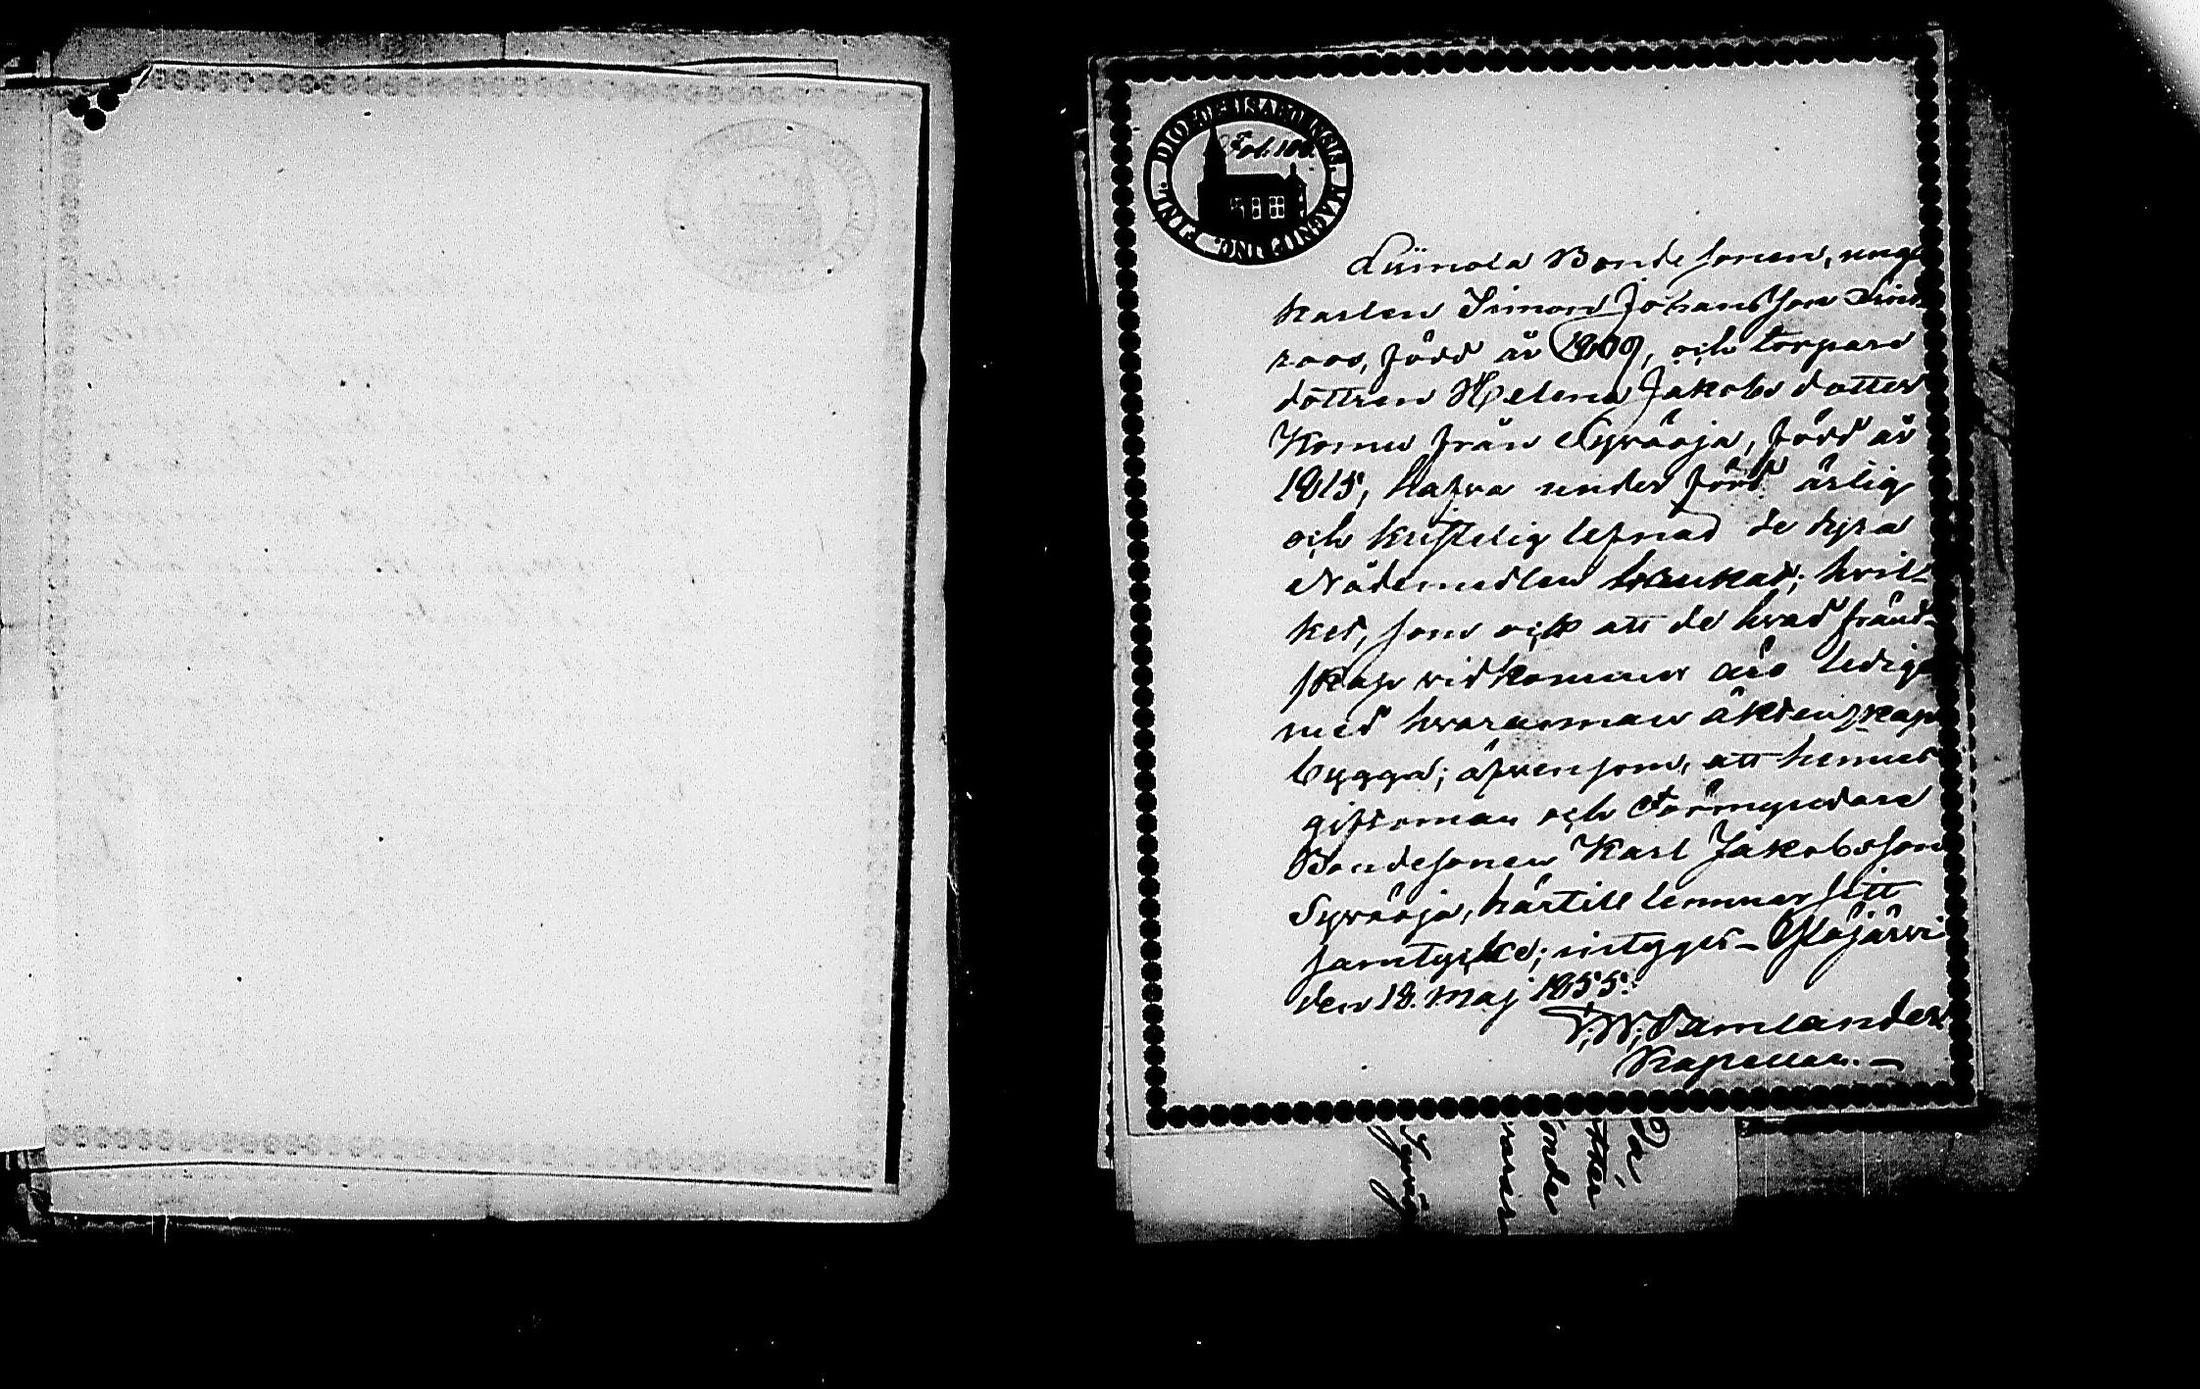 Fol. 106.
Limola Bonde sonen, ung
karlen Simon Johansson Lind
roos, född år 1809, och torpare
dottren Helena Jakobs dotter
Komu från Syväoja, född år
1815, hafva under förd ärlig
och kristelig lefnad de dyra
Nådemedlen brukat; hvil-
ket, som ock att de hvad fränd-
skap vidkommer äro lediga
med hvarannan äktenskap
bygga; äfvensom, att hennes
giftoman och Förmyndare
Bondesonen Karl Jakobsson
Syväoja, härtill lemnar sitt
samtycke; intygas - Ylöjärvi
den 18. Maj 1855.
Samlander
Kapellan. —